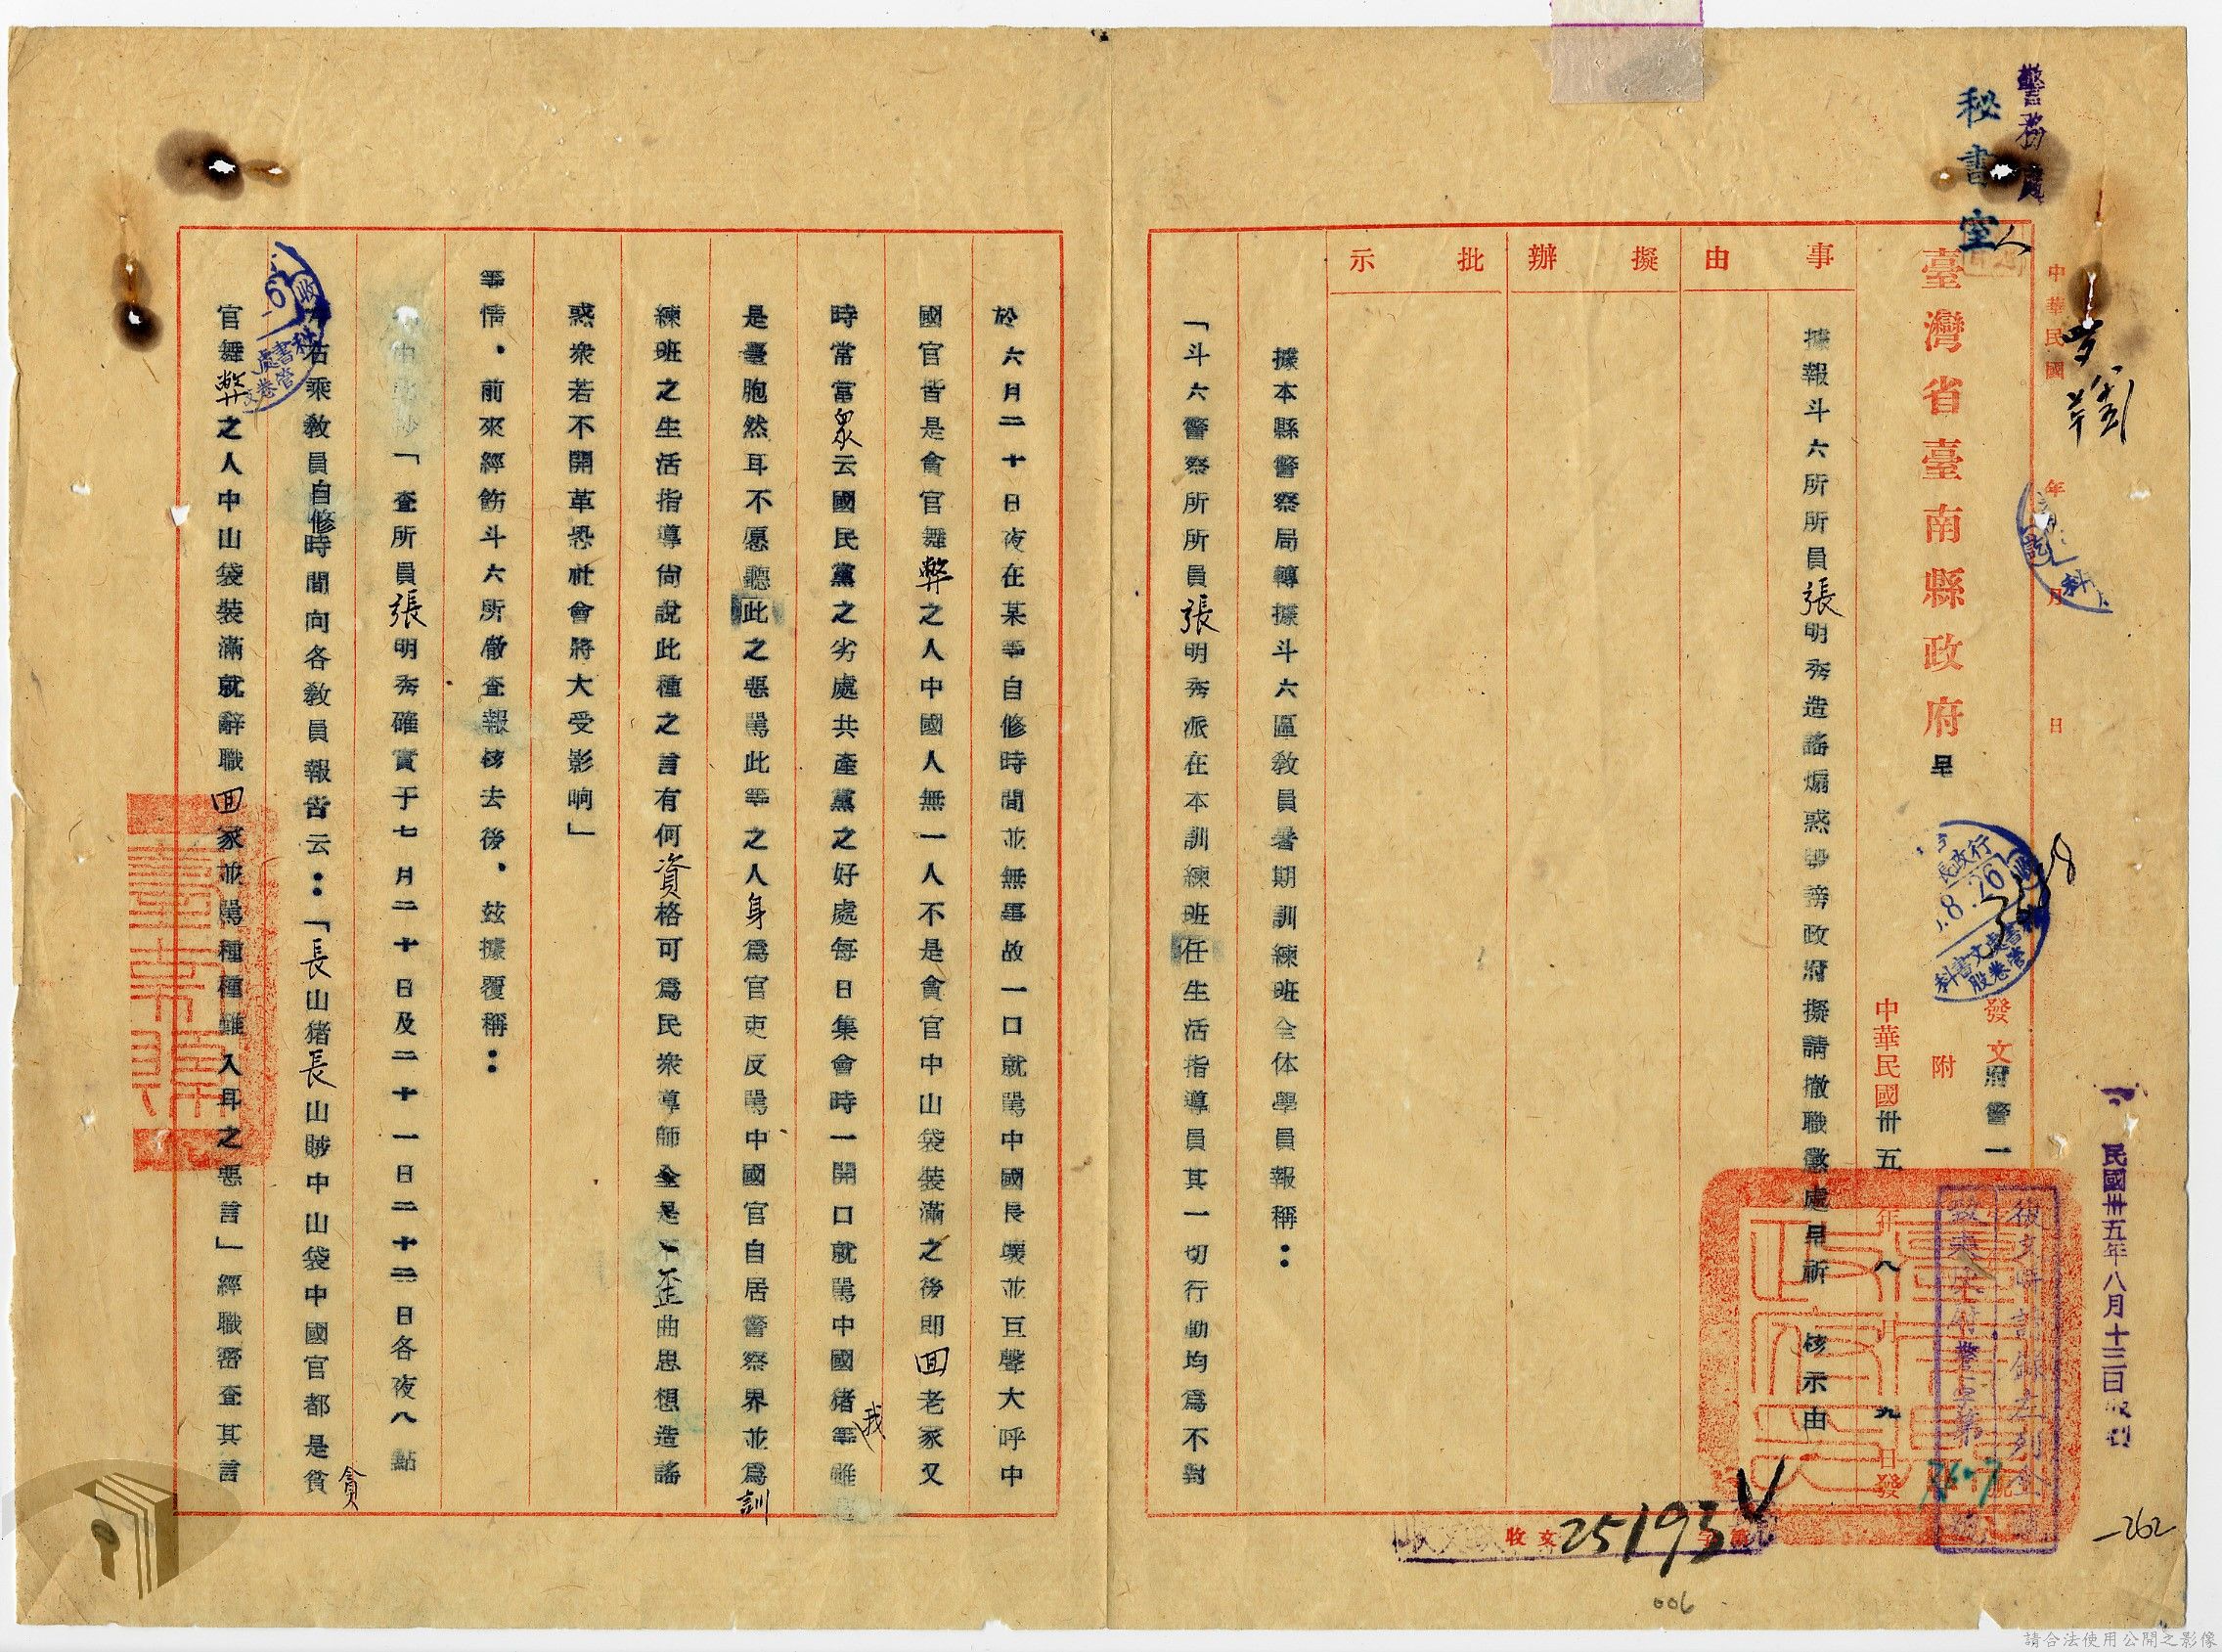 警務處
秘書室
中華民國 年 月 日
臺灣省臺南縣政府 呈
發文府警一
附
中華民國卅五年八月九日發
民國卅五年八月十三日
事由
擬辦
批示
據報斗六所所員張明秀造謠煽惑誹謗政府擬請撤職懲處呈祈 核示由
據本縣警察局轉據斗六區教員暑期訓練班全体學員報稱：
「斗六警察所所員張明秀派在本訓練班任生活指導員其一切行動均為不對
於六月二十日夜在某等自修時間並無事故一口就罵中國長壞並巨聲大呼中
國官皆是貪官舞弊之人中國人無一人不是貪官中山袋裝滿之後即回老家又
時常當衆云國民黨之劣處共產黨之好處每日集會時一開口就罵中國猪等我雖
是臺胞然耳不愿聽此之惡罵此等之人身為官吏反罵中國官自居警察界並為訓
練班之生活指導尚說此種之言有何資格可為民衆導師全是歪曲思想造謠
惑衆若不開革恐社會將大受影响」
等情．前來經飭斗六所嚴查報核去後．玆據覆稱：
「查所員張明秀確實于七月二十日及二十一日二十二日各夜八點
左右乘教員自修時間向各教員報告云：「長山猪長山賊中山袋中國官都是貪
官舞弊之人中山袋裝滿就辭職回家並罵種種難入耳之惡言」經職密查其言
收文
25193
8.26
文書科
006
262
請合法使用公開之影像